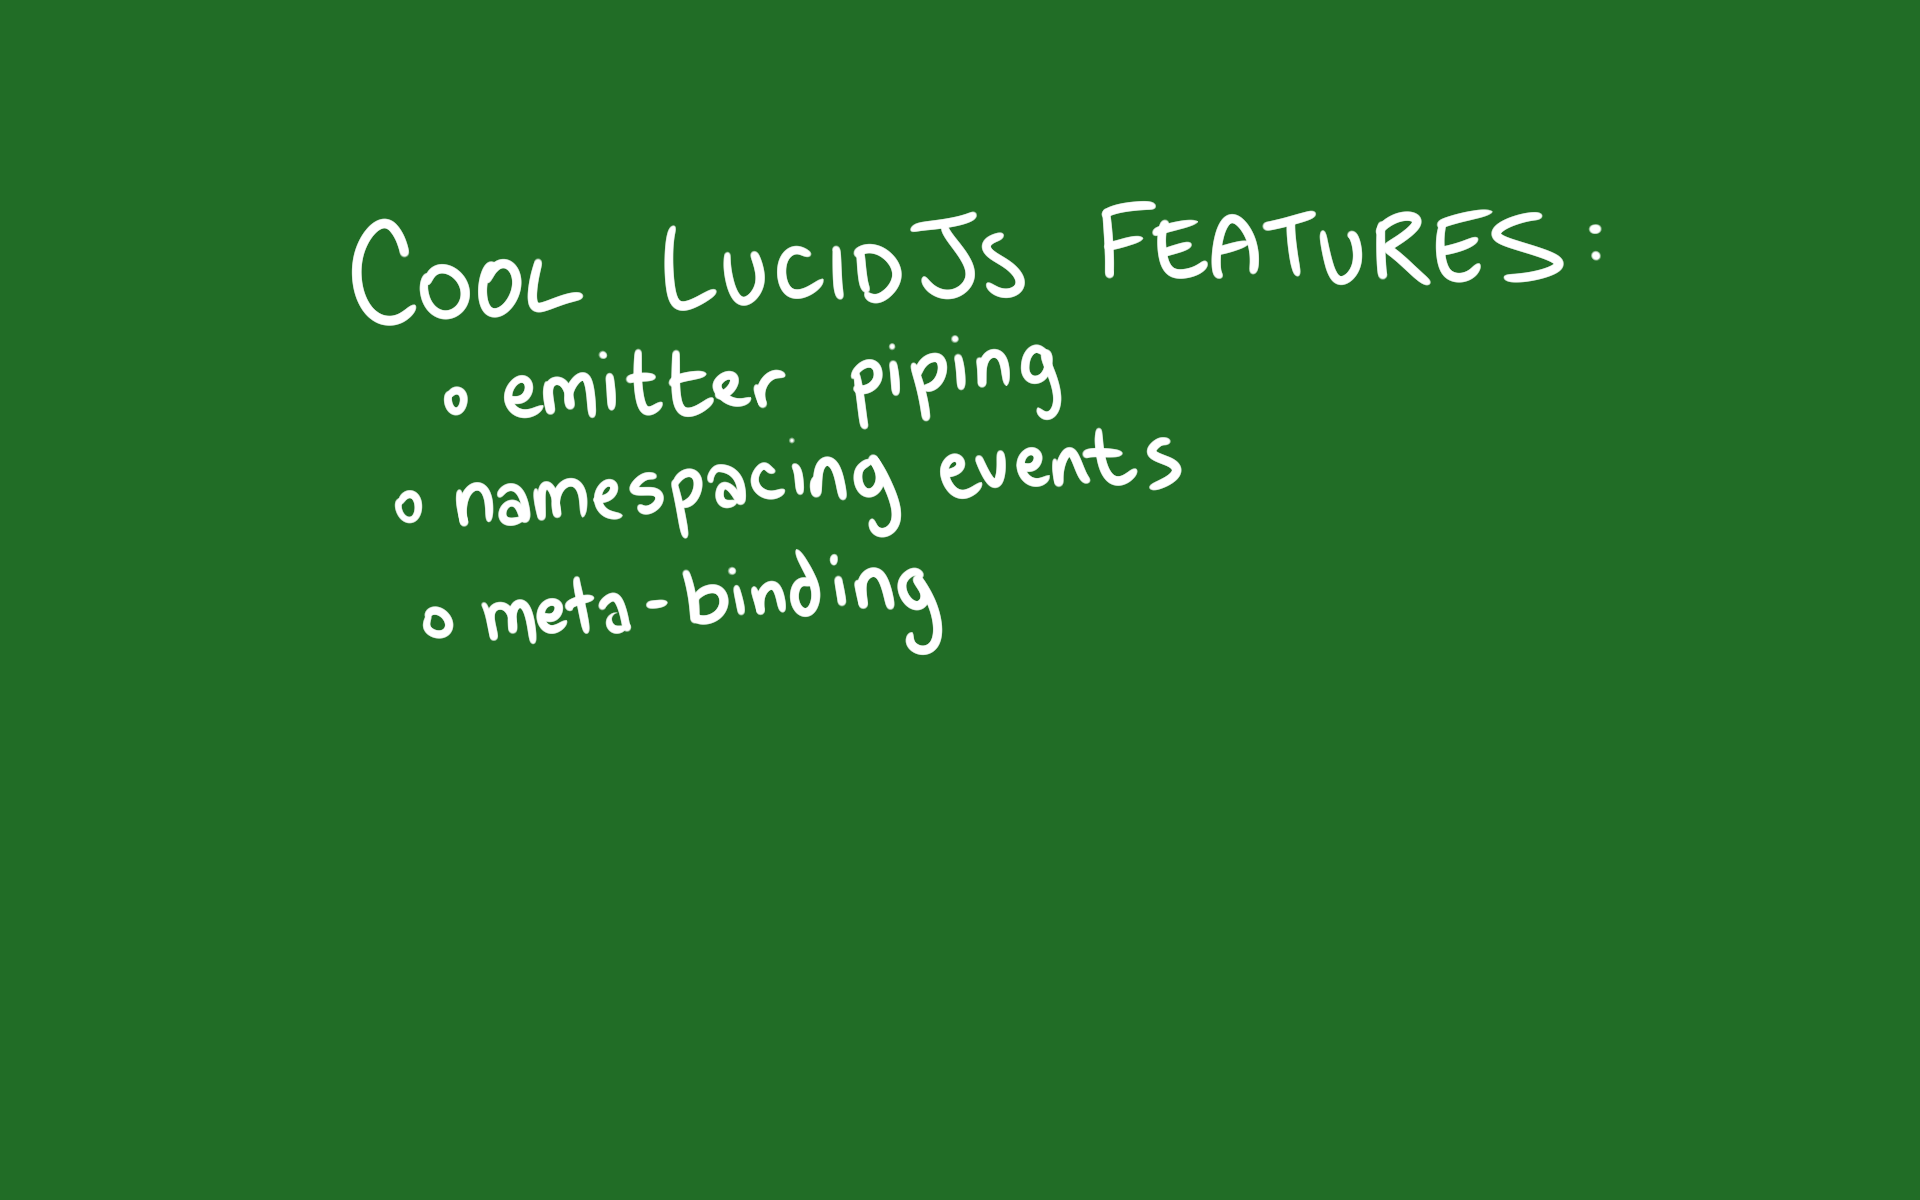 COOL LUCIDJS FEATURES:
o emitter piping
o namespacing events
o meta-binding